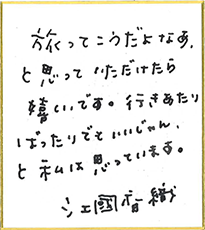 旅ってこうだよなあ、
と思っていただけたら
嬉いです。行きあたり
ばったりでもいいじゃん、
と私は思っています。
江國香織